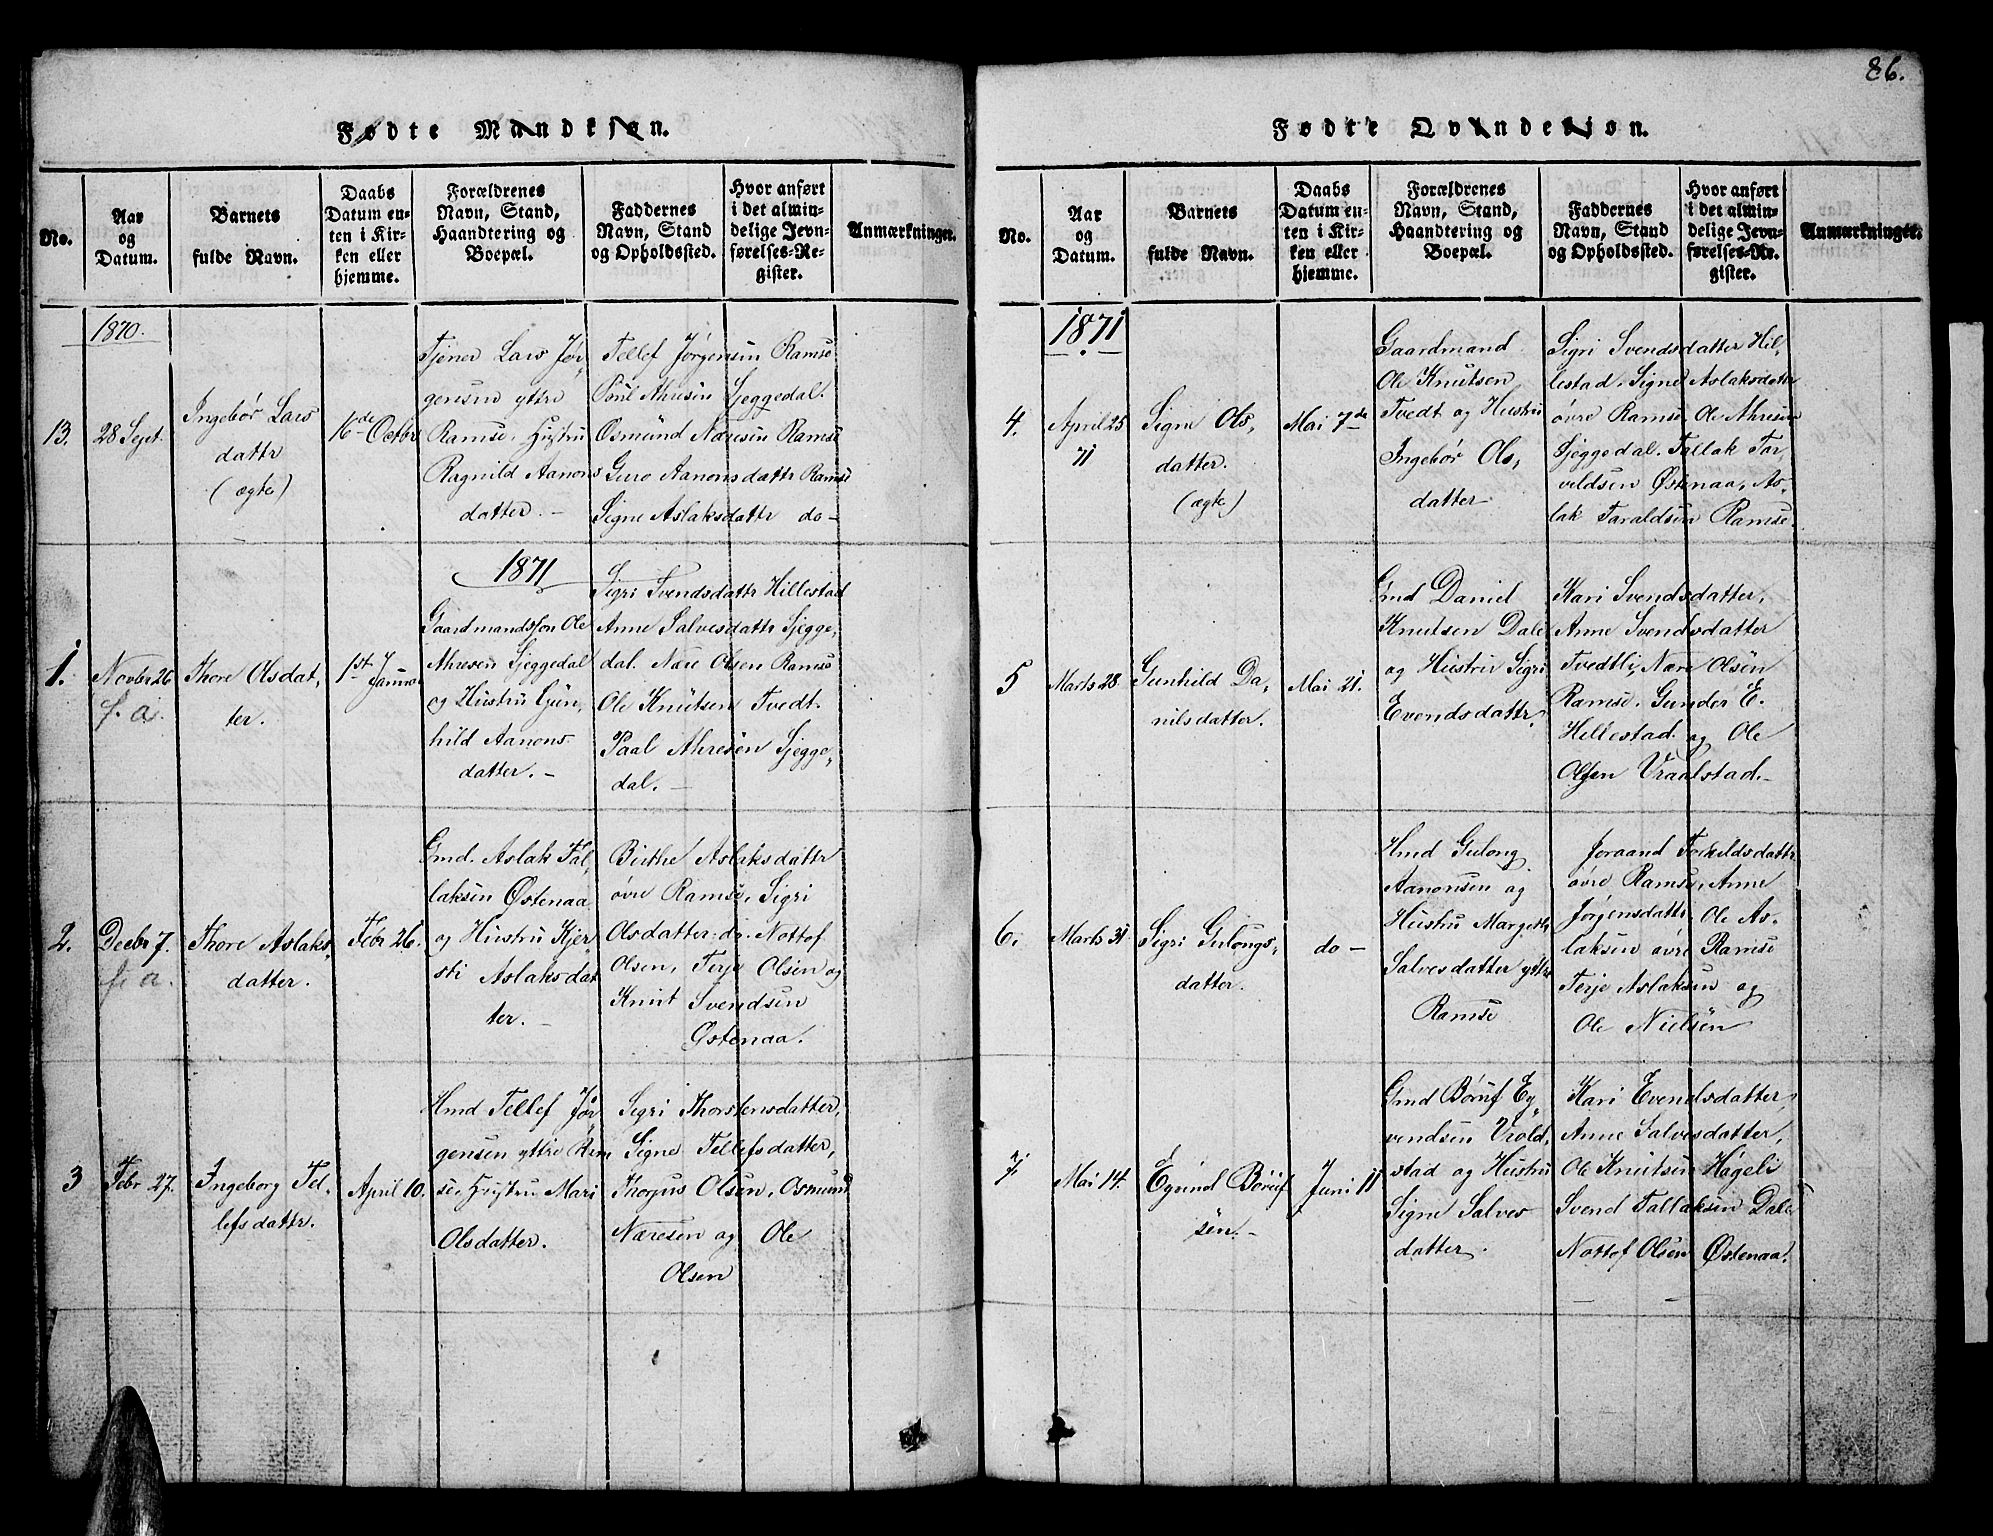 86.
Fødte Mandkjøn.
No.
Aar
og
Datum.
Barnets
fulde Navn.
Daabs
Datum en-
ten i Kir-
ken eller
hjemme.
Forældrenes
Navn, Stand,
Haandtering og
Boepæl.
Faddernes
Navn, Stand
og Opholdssted.
Hvor anført
i det almin-
delige Jevn-
førelses-Re-
gister.
Anmærkninger.
1870.
13.
28 Sept.
Ingebør Lars
dattr
(ægte)
16de Octbr
Tjener Lars Jør-
gensen yttre
Ramse. Hustru
Ragnild Aanons
datter. -
Tellef Jörgensen Ramse
Ahresen Sjeggedal.
Osmund Næresen Ramse
Guro Aanonsdattr Ramse
Signe Aslaksdattr do -
1871
1.
Novbr 26
f. a.
Thore Olsdat,
ter.
1st Januar
Gaardmandsson Ole
Ahresen Sjeggedal
og Hustru Gun,
hild Aanons
datter. -
Sigri Svendsdattr Hillestad
Anne Salvesdattr Sjegge,
dal. Nære Olsen Ramse
Ole Knutsen Tvedt.
Paal Ahresen Sjegge,
dal. -
2.
Decbr 7.
f. a.
Thore Aslaks-
datter.
Febr 26.
Gmd. Aslak Tal-
laksen Østenaa
og Hustru Kjer-
sti Aslaksdat
ter. -
Birthe Aslaksdattr
øvre Ramse, Sigri
Olsdatter do. Nottof
Olsen, Terje Olsen og
Knut Svendsen
Østenaa.
3
Febr 27.
Ingeborg Tel-
lefsdattr.
April 10.
Hmd Tellef Jör
gensen yttre Ram
se. Hustru Mari
Olsdatter.
Sigri Thorstensdatter,
Signe Tellefsdatter,
Thorjus Olsen, Osmund
Næresen og Ole
Olsen
Fødte Qvindekjøn.
No.
Aar
og
Datum.
Barnets
fulde Navn.
Daabs
Datum en-
ten i Kir-
ken eller
hjemme.
Forældrenes
Navn, Stand,
Haandtering og
Boepæl.
Faddernes
Navn, Stand
og Opholdssted.
Hvor anført
i det almin-
delige Jevn-
førelses-Re-
gister.
Anmærkninger.
1871
4.
April 25
71
Signe Ols,
datter.
(ægte)
Mai 7de
Gaardmand
Ole Knutsen
Tvedt og Hustru
Ingebør Ols,
datter
Sigri Svendsdatter Hil,
lestad. Signe Aslaksdatr
øvre Ramse, Ole Ahresen
Sjeggedal. Tallak Tar,
veldsen Østenaa, As-
lak Taraldsen Ramse.
5
Marts 28
Gunhild Da,
nilsdatter.
Mai 21.
Gmd Daniel
Knutsen Dale
og Hustru Sigri
Evendsdattr.
Kari Svendsdatter,
Anne Svendsdatter
Tvedtli, Nære Olsen
Ramse. Gunder E.
Hillestad og Ole
Olsen Vraalstad. -
6.
Marts 31
Sigri Gulongs,
datter.
do -
Hmd Gulong
Aanonsen og
Hustru Margeth
Salvesdatter yttre
Ramse
Joraand Torkildsdattr
øvre Ramse, Anne
Jørgensdattr Ole As-
laksen øvre Ramse
Terje Aslaksen og
Ole Nielsen
7.
Mai 14.
Eyvind Børuf
sen. -
Juni 11
Gmd Børuf Ey,
vendsen Vrold,
stad og Hustru
Signe Salves
datter.
Kari Evendsdatter,
Anne Salvesdatter,
Ole Knutsen Hageli
Svend Tallaksen Dale
Nottof Olsen Østenaa.